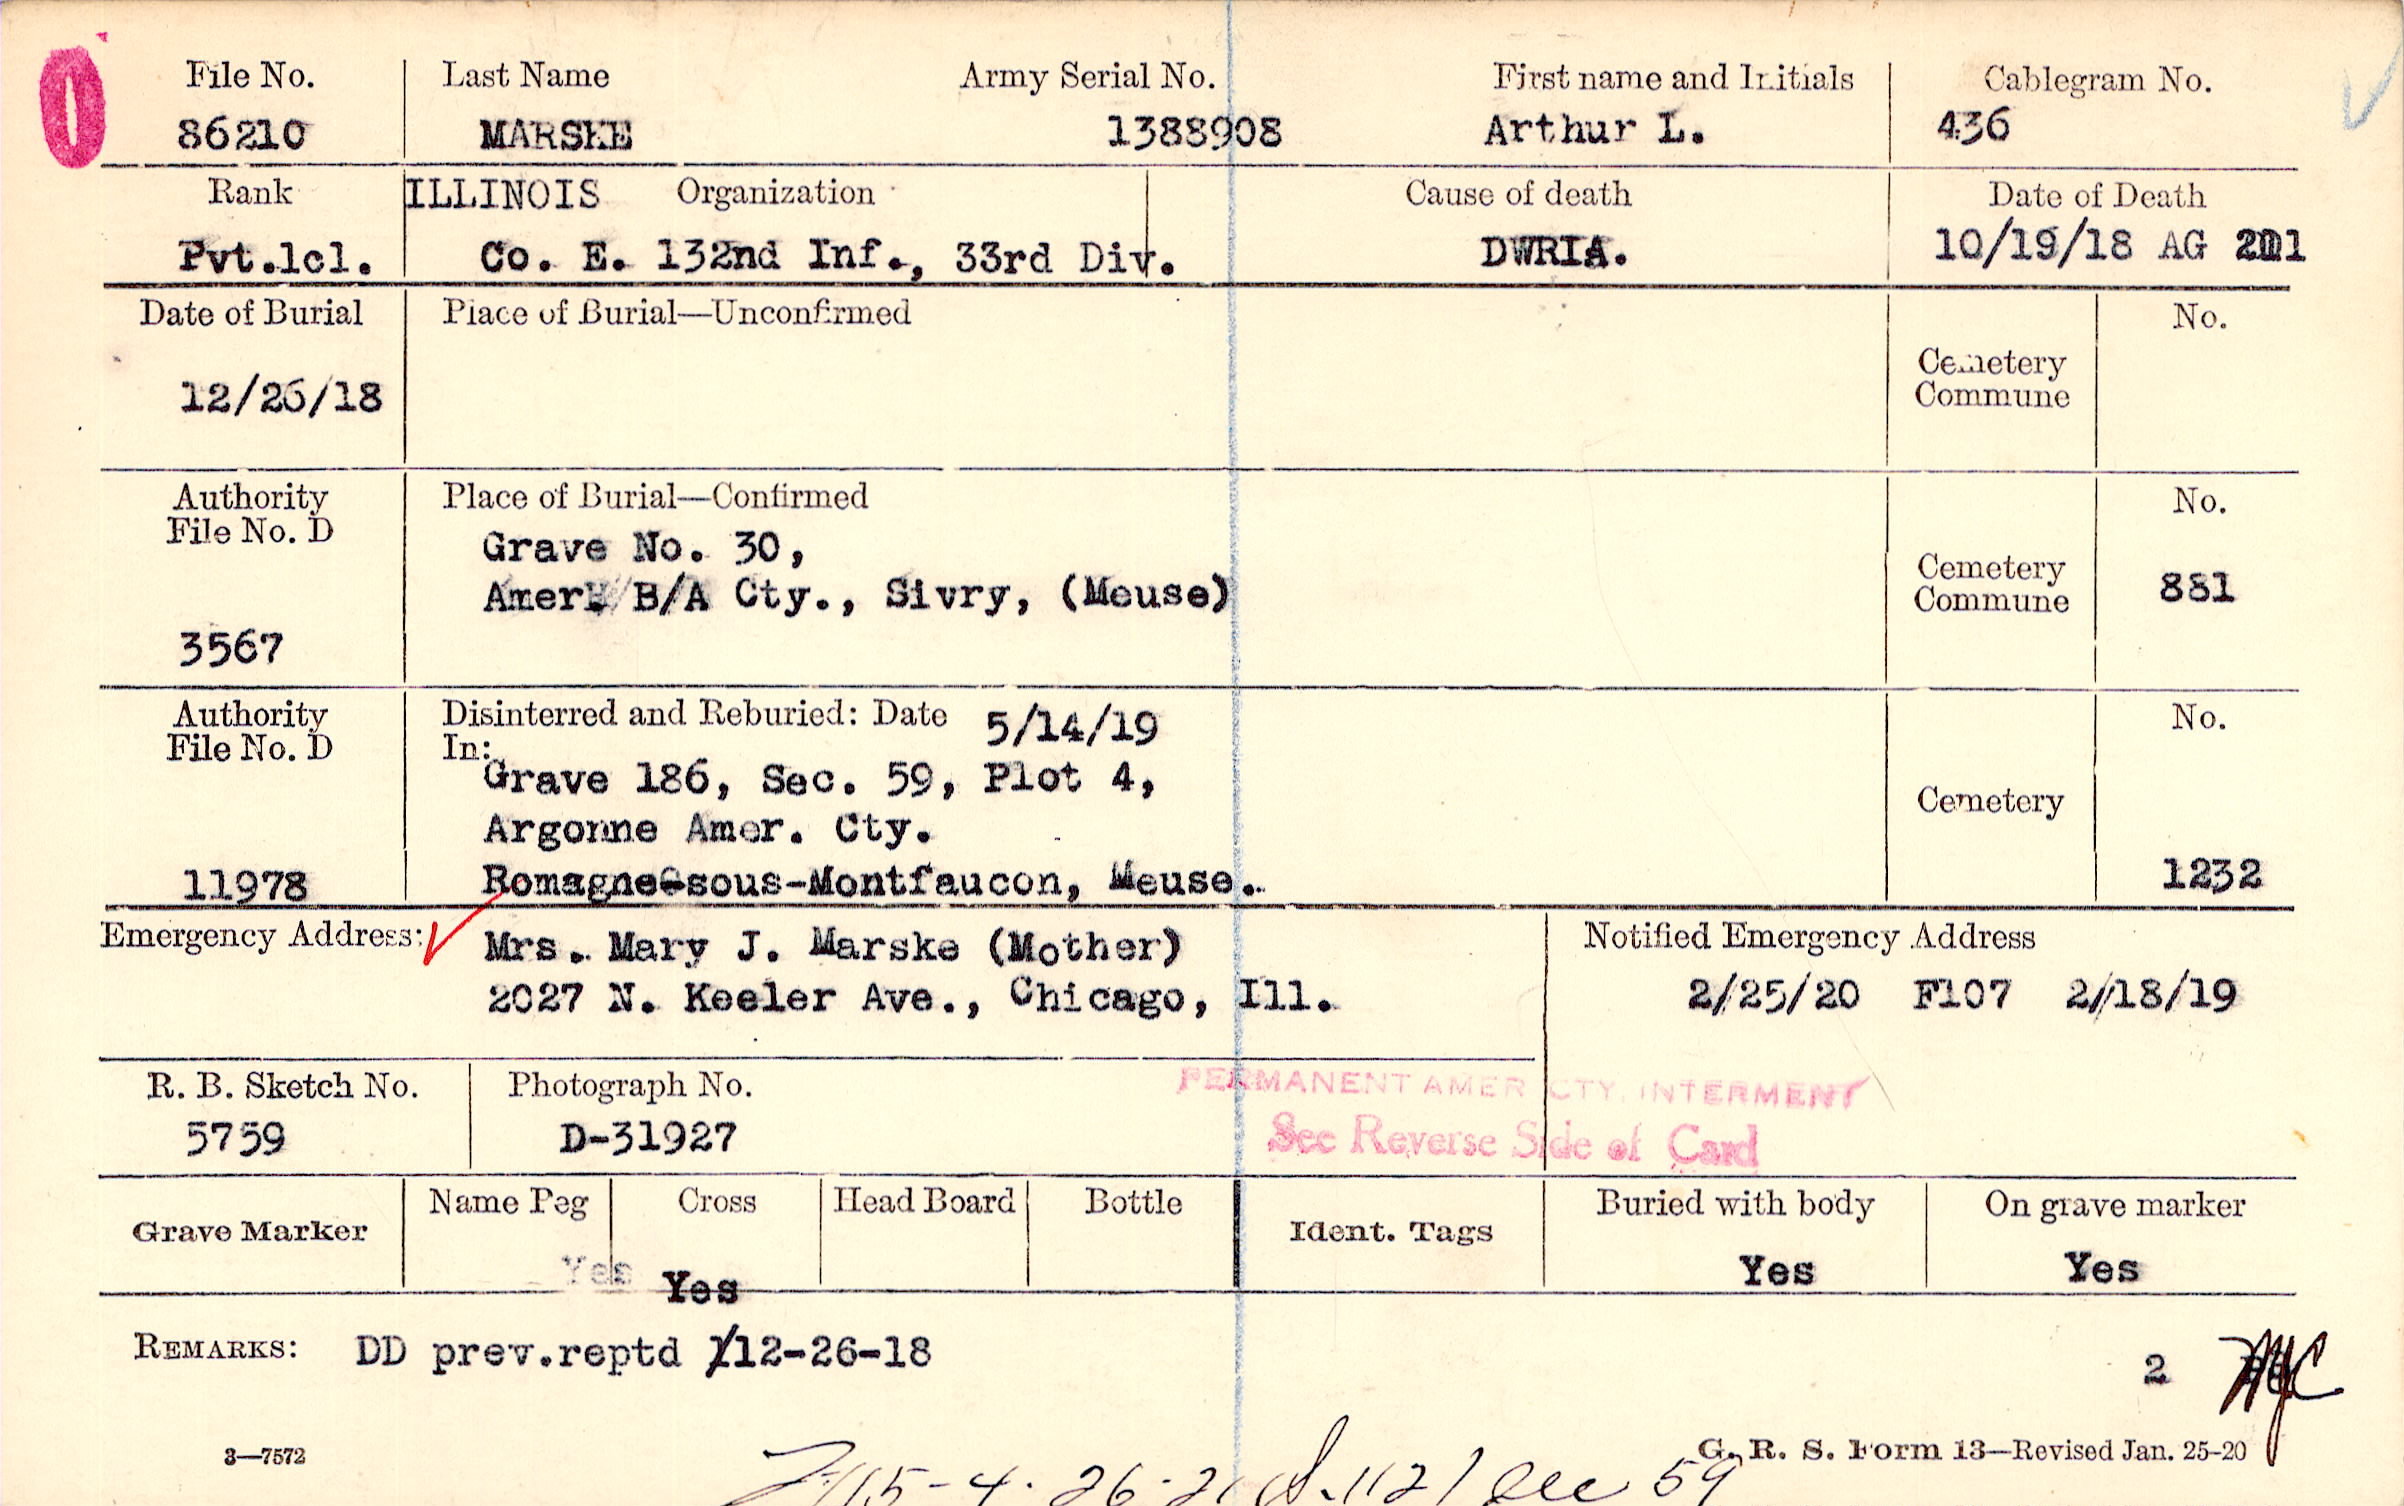 0
File No. Last Name Army Serial No. First name and Initials Cablegram No.
86210 MARSKE 1388908 Arthur L. 436
Rank ILLINOIS Organization Cause of death Date of Death
Pvt.lcl. Co. E. 132nd Inf., 33rd Div. DWRIA. 10/19/18 AG 201
Date of Burial Place of Burial—Unconfirmed No.
12/26/18 Cemetery
Commune
Authority Place of Burial—Confirmed No.
File No. D
Grave No. 30,
Amer. B/A Cty., Sivry, (Meuse) Cemetery
Commune 881
3567
Authority Disinterred and Reburied: Date 5/14/19 No.
File No. D In:
Grave 186, Sec. 59, Plot 4,
Argonne Amer. Cty. Cemetery
11978 Romagne-sous-Montfaucon, Meuse. 1232
Emergency Address: Mrs. Mary J. Marske (Mother) Notified Emergency Address
2027 N. Keeler Ave., Chicago, Ill. 2/25/20 F107 2/18/19
R. B. Sketch No. Photograph No. PERMANENT AMER CTY. INTERMENT
5759 D-31927 See Reverse Side of Card
Grave Marker Name Peg Cross Head Board Bottle Ident. Tags Buried with body On grave marker
Yes Yes Yes Yes
REMARKS: DD prev.reptd 12-26-18
2
3—7572 G. R. S. Form 13—Revised Jan. 25-20
15-4-26-21 59